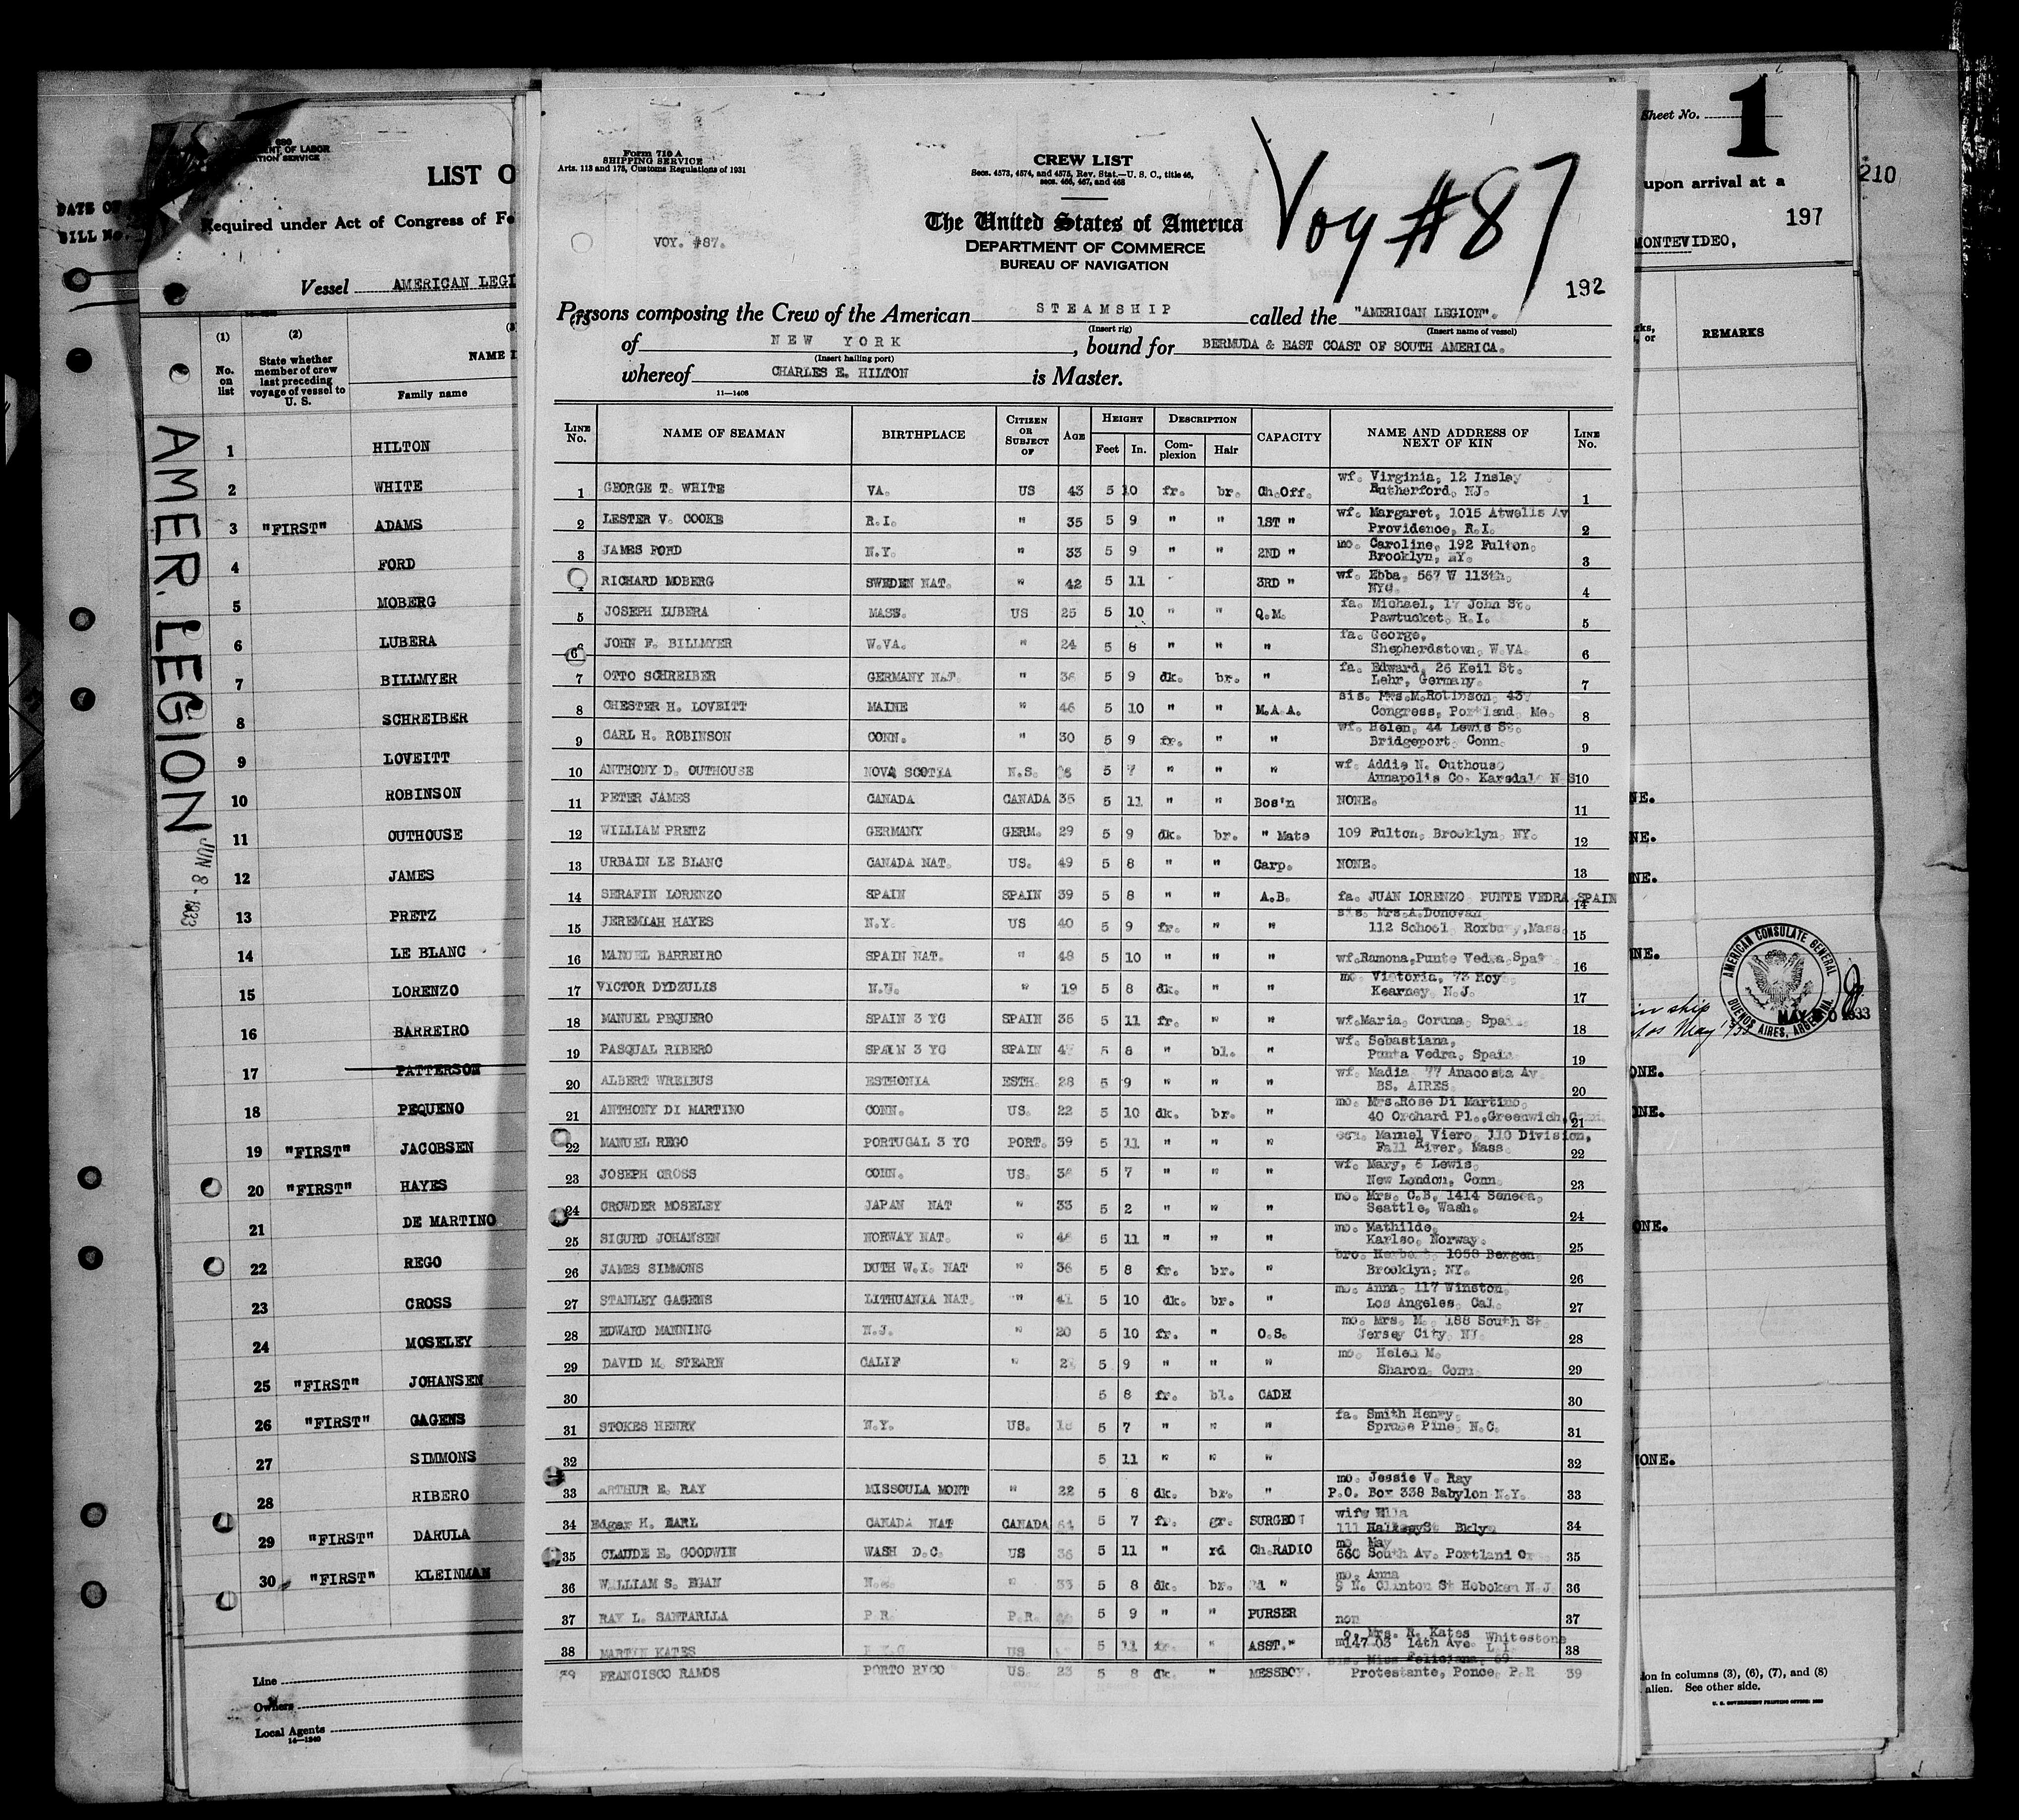 DATE OF
BILL No.
LIST O
Required under Act of Congress of Fe
Vessel AMERICAN LEGI
(1) (2)
No. on list
State whether member of crew last preceding voyage of vessel to U. S.
NAME I
Family name
AMER. LEGION
JUN 8 - 1933
1 HILTON
2 WHITE
3 "FIRST" ADAMS
4 FORD
5 MOBERG
6 LUBERA
7 BILLMYER
8 SCHREIBER
9 LOVEITT
10 ROBINSON
11 OUTHOUSE
12 JAMES
13 PRETZ
14 LE BLANC
15 LORENZO
16 BARREIRO
17 PATTERSON
18 PEQUENO
19 "FIRST" JACOBSEN
20 "FIRST" HAYES
21 DE MARTINO
22 REGO
23 CROSS
24 MOSELEY
25 "FIRST" JOHANSEN
26 "FIRST" GAGENS
27 SIMMONS
28 RIBERO
29 "FIRST" DARULA
30 "FIRST" KLEINMAN
Line
Owners
Local Agents
14—1240
Form 710 A
SHIPPING SERVICE
Arts. 113 and 175, Customs Regulations of 1931
CREW LIST
Secs. 4573, 4574, and 4575, Rev. Stat.—U. S. C., title 46,
secs. 466, 467, and 468
The United States of America
DEPARTMENT OF COMMERCE
BUREAU OF NAVIGATION
VOY. #87.
Voy #87
192
Persons composing the Crew of the American STEAMSHIP called the "AMERICAN LEGION".
(Insert rig) (Insert name of vessel)
of NEW YORK, bound for BERMUDA & EAST COAST OF SOUTH AMERICA.
(Insert hailing port)
whereof CHARLES E. HILTON is Master.
11—1408
LINE No. NAME OF SEAMAN BIRTHPLACE CITIZEN OR SUBJECT OF AGE HEIGHT Feet In. DESCRIPTION Complexion Hair CAPACITY NAME AND ADDRESS OF NEXT OF KIN LINE No.
1 GEORGE T. WHITE VA. US 43 5 10 fr. br. Ch.Off. wf. Virginia, 12 Insley Rutherford, NJ. 1
2 LESTER V. COOKE R.I. " 35 5 9 " " 1ST " wf. Margaret, 1015 Atwells Av Providence, R.I. 2
3 JAMES FORD N.Y. " 33 5 9 " " 2ND " mo. Caroline, 192 Fulton, Brooklyn, NY. 3
RICHARD MOBERG SWEDEN NAT. " 42 5 11 3RD " wf. Ebba, 567 W 113th, NYC. 4
5 JOSEPH LUBERA MASS. US 25 5 10 " " Q.M. fa. Michael, 17 John St. Pawtucket, R.I. 5
6 JOHN F. BILLMYER W.VA. " 24 5 8 " " " fa. George, Shepherdstown, W.VA. 6
7 OTTO SCHREIBER GERMANY NAT. " 36 5 9 dk. br. " fa. Edward, 26 Keil St. Lehr, Germany. 7
8 CHESTER H. LOVEITT MAINE " 46 5 10 " " M.A.A. sis. Mrs.M.Robinson, 43 Congress, Portland, Me. 8
9 CARL H. ROBINSON CONN. " 30 5 9 fr. " " wf. Helen, 44 Lewis St. Bridgeport, Conn. 9
10 ANTHONY D. OUTHOUSE NOVA SCOTIA N.S. 5 7 " " " wf. Addie N. Outhouse Annapolis Co. Karsdale N S 10
11 PETER JAMES CANADA CANADA 35 5 11 " " Bos'n NONE. 11
12 WILLIAM PRETZ GERMANY GERM. 29 5 9 dk. br. " Mate 109 Fulton, Brooklyn, NY. 12
13 URBAIN LE BLANC CANADA NAT. US. 49 5 8 " " Carp. NONE. 13
14 SERAFIN LORENZO SPAIN SPAIN 39 5 8 " " A.B. fa. JUAN LORENZO PUNTE VEDRA SPAIN 14
15 JEREMIAH HAYES N.Y. US 40 5 9 fr. " " sis. Mrs.A.Donovan 112 School Roxbury, Mass. 15
16 MANUEL BARREIRO SPAIN NAT. " 48 5 10 " " " wf.Ramona,Punte Vedra, Spa 16
17 VICTOR DYDZULIS " 19 5 8 dk. " " mo. Victoria, 73 Hoyt Kearney, N.J. 17
18 MANUEL PEQUERO SPAIN 3 YC SPAIN 35 5 11 fr. " " wf.Maria, Coruna, Spa 18
19 PASQUAL RIBERO SPAIN 3 YC SPAIN 5 8 " bl. " wf. Sebastiana, Punta Vedra, Spain 19
20 ALBERT WREIBUS ESTHONIA ESTH. 28 5 9 " " " wf. Madia 77 Anacosta Av. BS. AIRES. 20
21 ANTHONY DI MARTINO CONN. US. 22 5 10 dk. br. " mo. Mrs.Rose Di Martino, 40 Orchard Pl.,Greenwich,Conn. 21
22 MANUEL REGO PORTUGAL 3 YC PORT. 39 5 11 " " " Manuel Viero, 110 Division, Fall River, Mass. 22
23 JOSEPH CROSS CONN. US. 36 5 7 " " " wf. Mary, 6 Lewis, New London, Conn. 23
24 CROWDER MOSELEY JAPAN NAT " 33 5 2 " " " mo. Mrs. C.B, 1414 Seneca, Seattle, Wash. 24
25 SIGURD JOHANSEN NORWAY NAT. " 5 11 " " " mo. Mathilde, Karlso, Norway. 25
26 JAMES SIMMONS DUTH W.I. NAT " 36 5 8 fr. br. " bro. Herbert 1058 Bergen, Brooklyn, NY. 26
27 STANLEY GAGENS LITHUANIA NAT. " 41 5 10 dk. br. " mo. Anna, 117 Winston, Los Angeles, Cal. 27
28 EDWARD MANNING N.J. " 20 5 10 fr. " O.S. mo. Mrs. M. 188 South St. Jersey City, NJ. 28
29 DAVID M. STEARN CALIF " 5 9 " " " mo. Helen M. Sharon, Conn. 29
30 5 8 fr. bl. CADET 30
31 STOKES HENRY N.Y. US. 18 5 7 " " " fa. Smith Henry, Spruse Pine, N.C. 31
32 5 11 " " " 32
33 ARTHUR E. RAY MISSOULA MONT " 22 5 8 dk. br. " mo. Jessie V. Ray P.O. Box 338 Babylon N.Y. 33
34 Edgar H. EARL CANADA NAT CANADA 64 5 7 fr. gr. SURGEON wife Ella 111 Bklyn 34
35 CLAUDE E. GOODWIN WASH D.C. US 36 5 11 " rd Ch.RADIO mo May 660 South Av. Portland 35
36 WILLIAM S. EGAN " 33 5 8 dk. br. 2d " mo. Anna 9 N. Clinton St Hoboken N.J 36
37 RAY L. SANTARLLA P.R. P.R. 5 9 " " PURSER non 37
38 MARTIN KATES US 5 11 fr. " ASST." mo. Mrs. R. Kates 147 03 14th Ave. Whitestone L I 38
39 FRANCISCO RAMOS PORTO RYCO US. 23 5 8 dk. " MESSBOY. sis. Miss Feliciana, 69 Protestante, Ponce, P.R 39
Sheet No. 1
upon arrival at a
210
197
MONTEVIDEO,
REMARKS
NE.
NE.
NE.
NE.
AMERICAN CONSULATE GENERAL
BUENOS AIRES, ARGENTINA.
MAY 1933
in ship
ONE.
ONE.
ONE.
ONE.
ion in columns (3), (6), (7), and (8)
alien. See other side.
U. S. GOVERNMENT PRINTING OFFICE